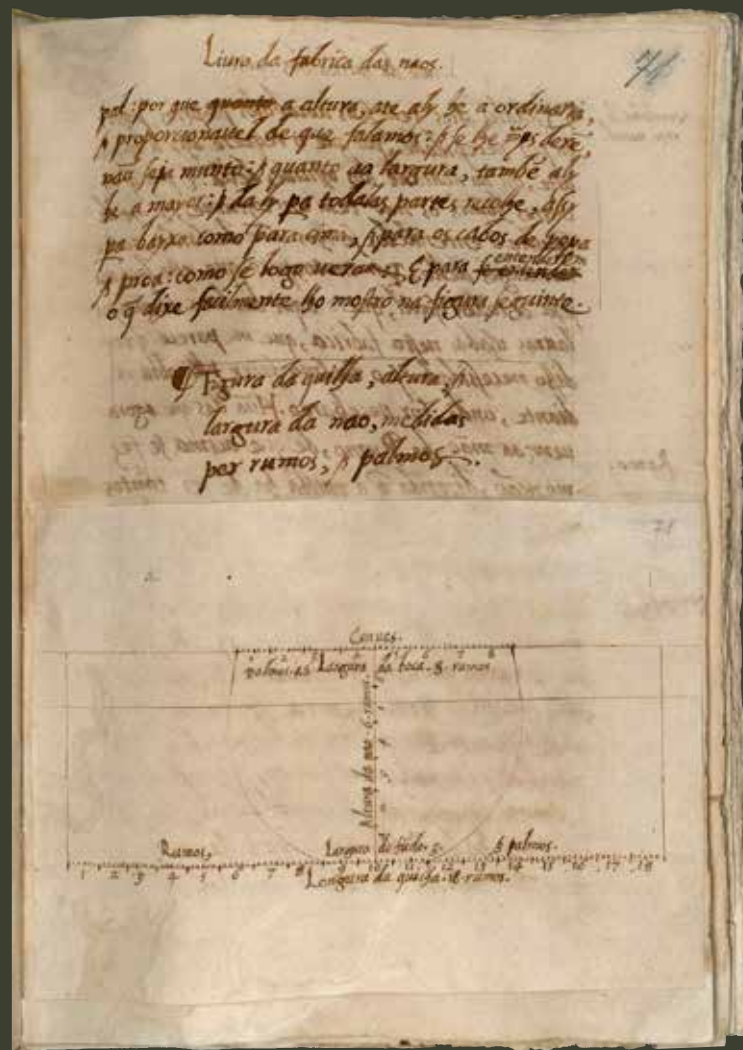 Liuro da fabrica das naos.
71
pal: por que quanto a altura, ate aly he a ordinaria,
& proporcionauel de que falamos: & se lhe mais derẽ,
não seja muinto: & quanto aa largura, tambẽ aly
he a mayor: & daly pa todalas partes recolhe, assy
pa baixo como para cima, & para os cabos de popa
& proa: como se logo uera. E para se entender
entenderem
o q̃ dixe facilmente lho mostro na figura seguinte.
Figura da quilha, altura, &
largura da nao, medidas
por rumos, & palmos.
Conues.
1 2 3 4 5 6 7 8
palmos. 45 Largura da boca. 8. rumos
Altura da nao. 6. rumos
Rumos,
Largura do fũdo.
& palmos.
1 2 3 4 5 6 7 8 9 10 11 12 13 14 15 16 17 18
Longura da quilha. 18. rumos.